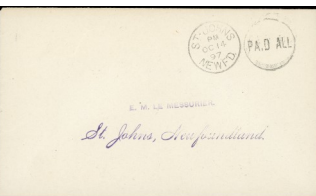 ST. JOHN'S
PB
OC 14
97
NEWF'D.
PAID ALL
E. M. LE MESSURIER.
St. Johns, Newfoundland.